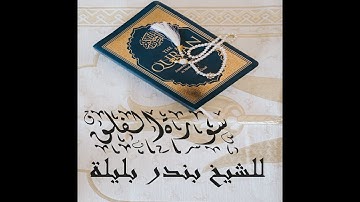 THE
QUR'AN
سورة الفلق
للشيخ بندر بليلة